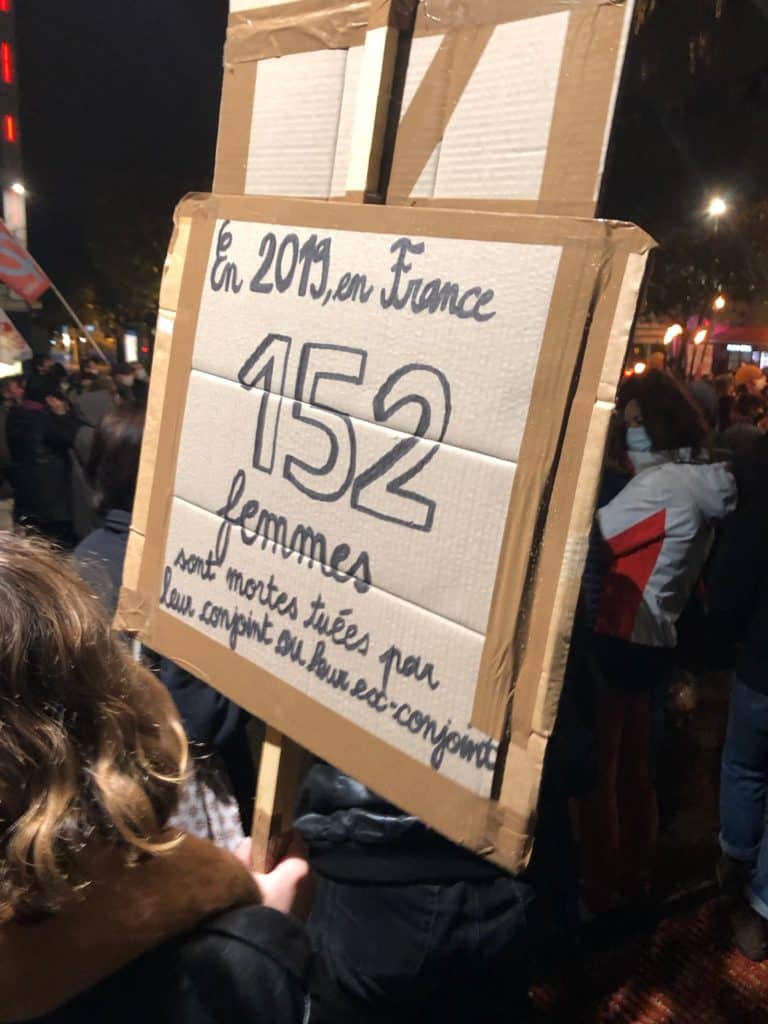 En 2019, en France
152
femmes
sont mortes tuées par
leur conjoint ou leur ex-conjoint